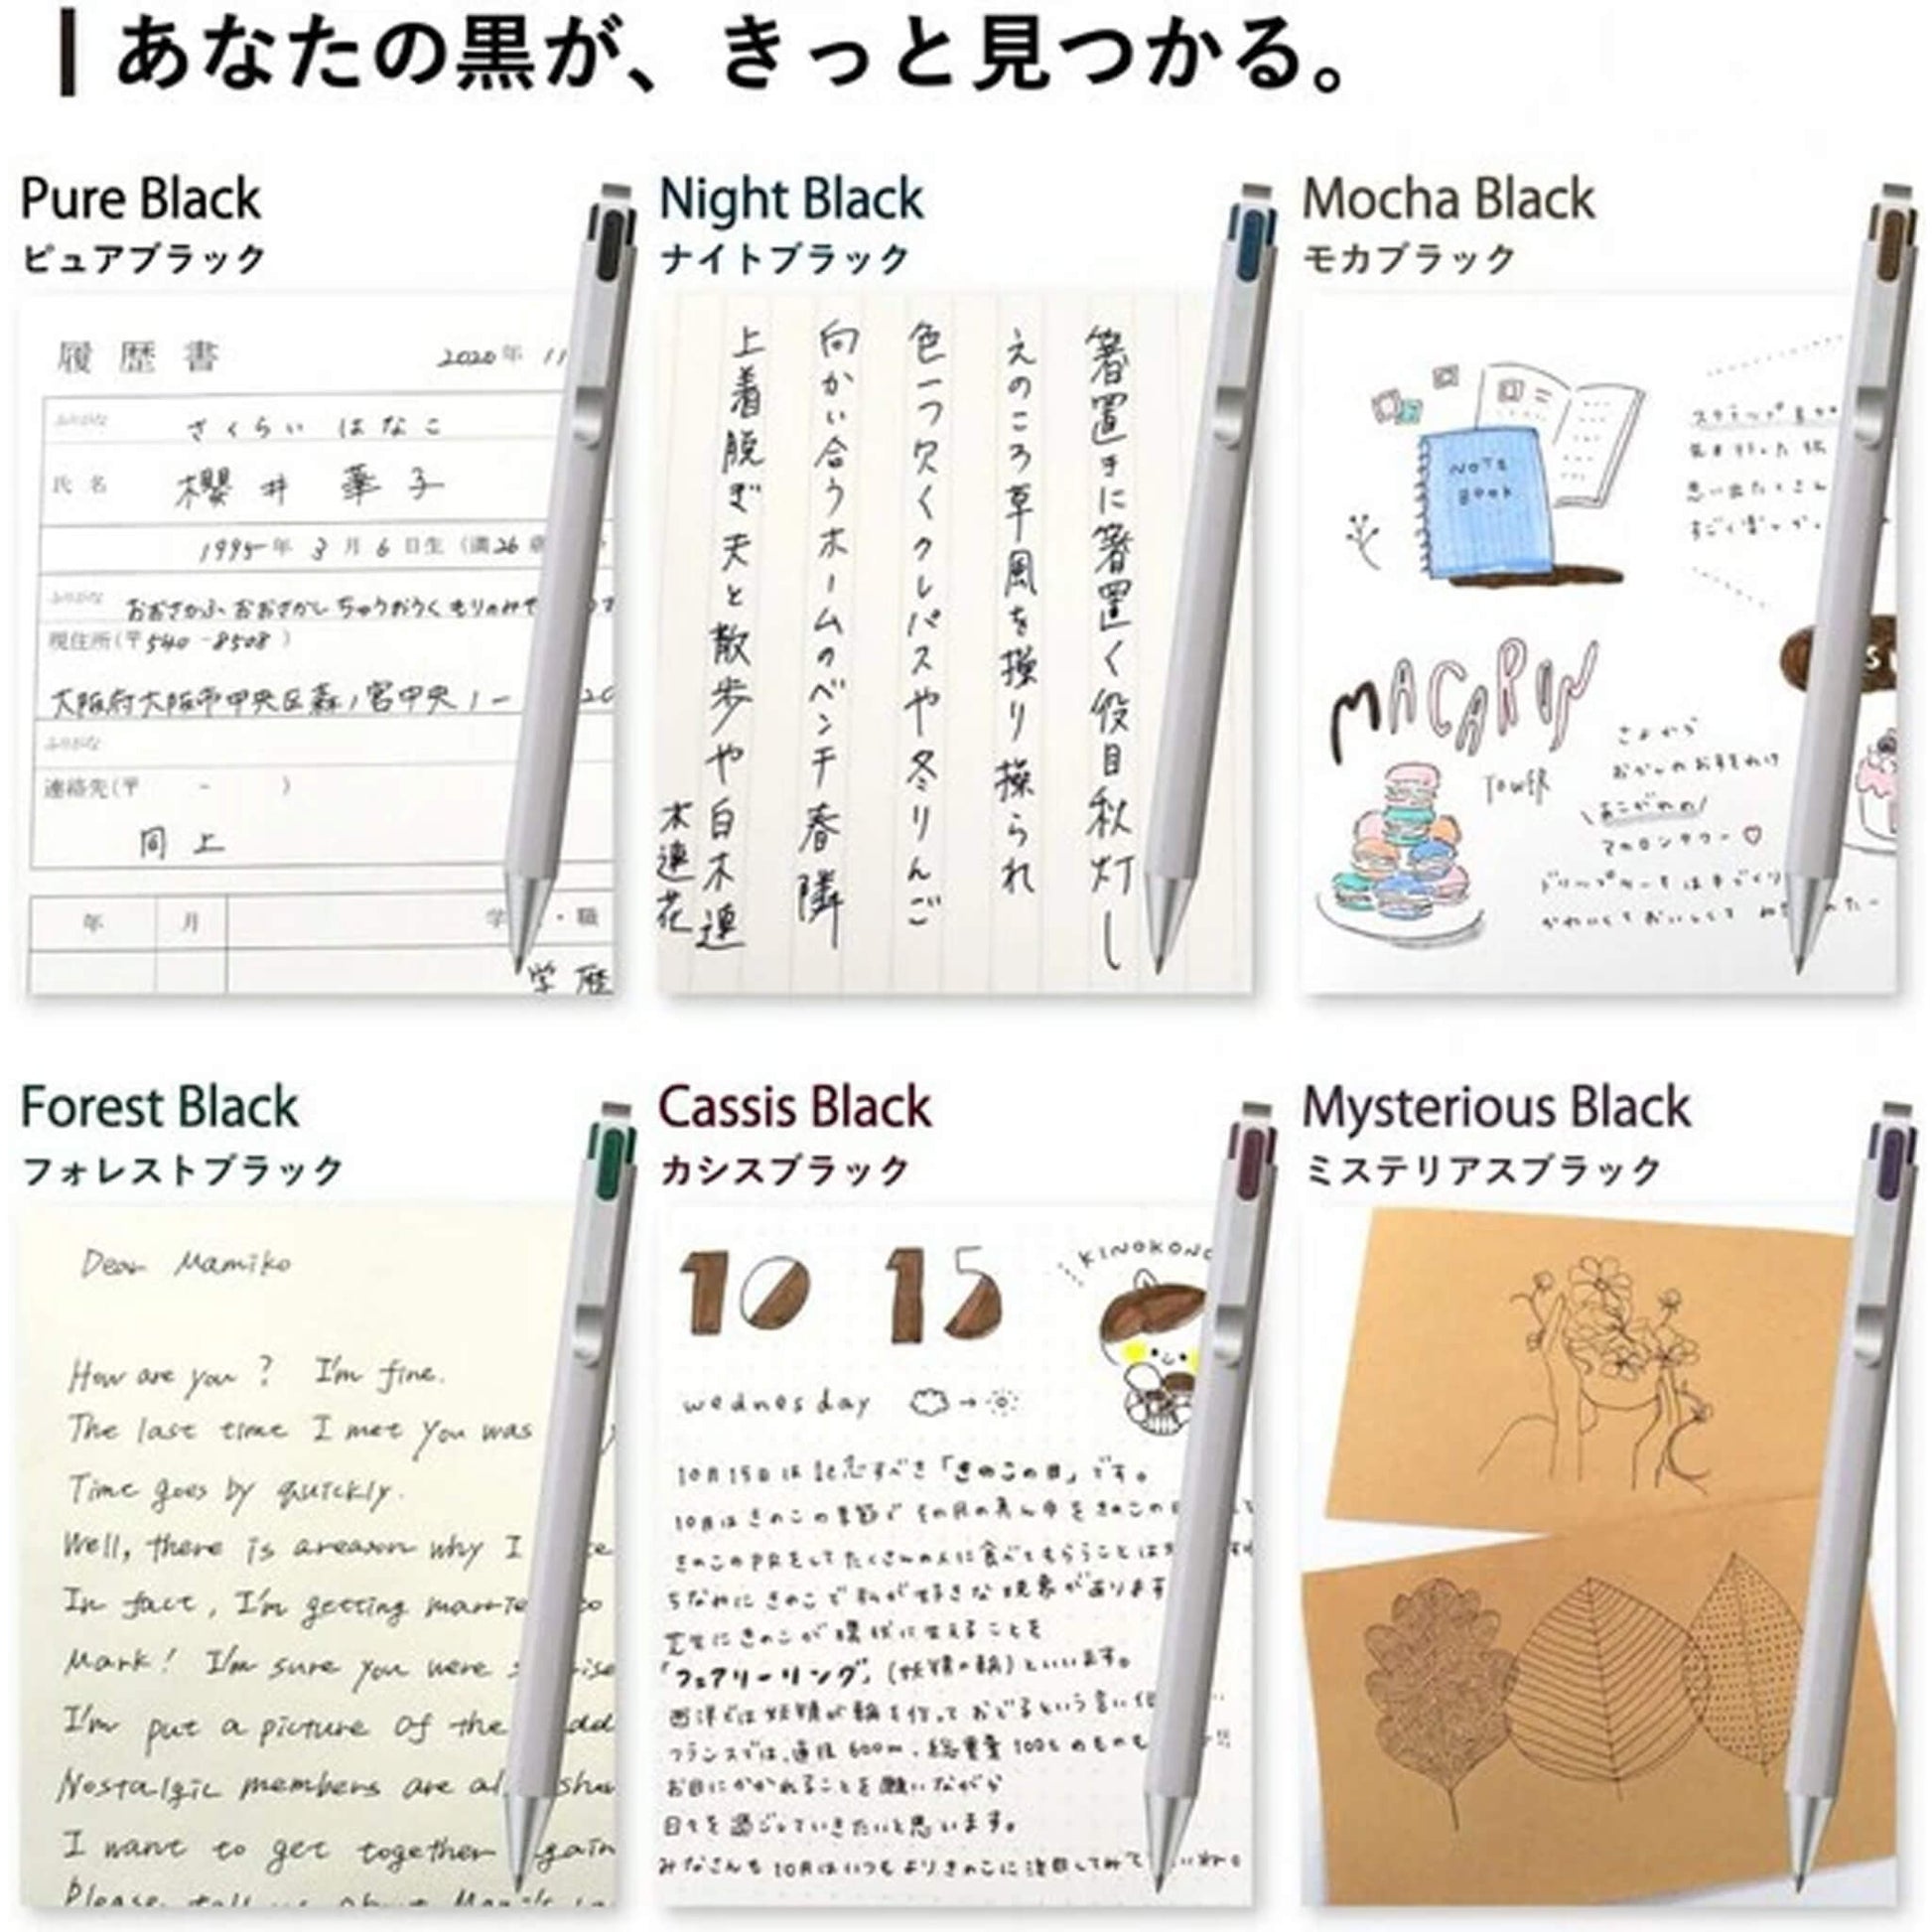 あなたの黒が、きっと見つかる。
Pure Black
ピュアブラック
履歴書 2020年 11
ふりがな さくらい はなこ
氏名 櫻井 華子
1995年 3月 6日生 (満26歳
ふりがな おおさかふ おおさかし ちゅうおうく もりのみや
現住所(〒540-8508)
大阪府大阪市中央区森ノ宮中央1-
ふりがな
連絡先(〒 - )
同上
年 月 学 ・職
学歴
Night Black
ナイトブラック
箸置きに箸置く役目秋灯し
えのころ草風を操り操られ
色一つ欠くクレパスや冬りんご
向かい合うホームのベンチ春隣
上着脱ぎ夫と散歩や白木蓮
木蓮花
Mocha Black
モカブラック
NOTE
BOOK
思い出たくさん
MACARON
TOWER
さよから
あこがれの
マカロンタワー♡
Forest Black
フォレストブラック
Dear Mamiko
How are you? I'm fine.
The last time I met you was
Time goes by quickly.
Well, there is areason why I
In fact, I'm getting married
Mark! I'm sure you were
I'm put a picture of the
Nostalgic members are al
I want to get together again
Please tell us about
Cassis Black
カシスブラック
10 15
KINOKONO
wednesday
10月15日は記念すべき「きのこの日」です。
10月はきのこの季節で その月の真ん中をきのこの日
きのこのPRをしてたくさんの人に食べてもらうことは
ちなみにきのこで私が好きな現象があります
芝生にきのこが環状に生えることを
「フェアリーリング」(妖精の輪)といいます。
西洋では妖精が輪を作っておどるという言い伝
フランスでは、直径600m、総重量100tのものも
お目にかかれることを願いながら
日々を過ごしていきたいと思います。
みなさんも10月はいつもよりきのこに注目してみて
Mysterious Black
ミステリアスブラック